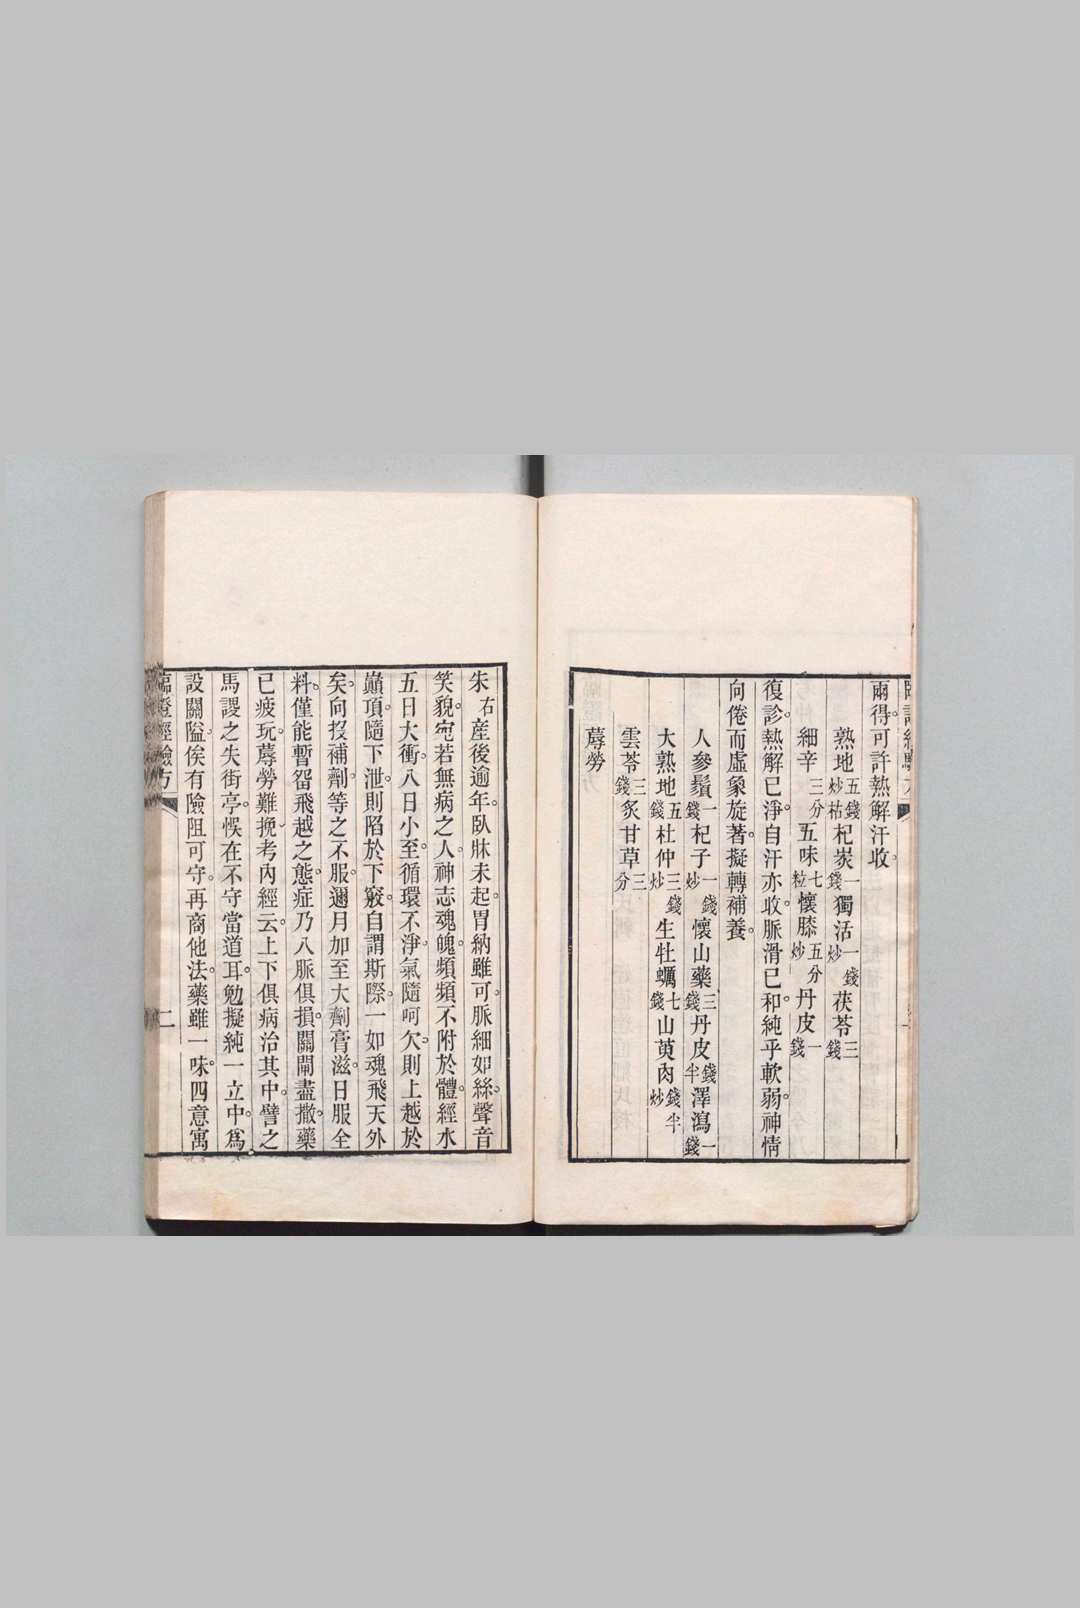 兩得可許熱解汗收
熟地五錢炒枯 杞炭一錢 獨活一錢炒 茯苓三錢
細辛三分 五味七粒 懷膝五分炒 丹皮一錢
復診熱解已淨自汗亦收脈滑已和純乎軟弱神情
向倦而虛象旋著擬轉補養
人參鬚一錢 杞子一錢炒 懷山藥三錢 丹皮錢半 澤瀉一錢
大熟地五錢 杜仲三錢炒 生牡蠣七錢 山萸肉錢半炒
雲苓三錢 炙甘草三分
蓐勞
朱右產後逾年臥牀未起胃納雖可脈細如絲聲音
笑貌宛若無病之人神志魂魄頻頻不附於體經水
五日大衝八日小至循環不淨氣隨呵欠則上越於
巔頂隨下泄則陷於下竅自謂斯際一如魂飛天外
矣向投補劑等之不服邇月加至大劑膏滋日服全
料僅能暫留飛越之態症乃八脈俱損關閘盡撤藥
已疲玩蓐勞難挽考內經云上下俱病治其中譬之
馬謖之失街亭悞在不守當道耳勉擬純一立中為
設關隘俟有險阻可守再商他法藥雖一味四意寓
臨證經驗方
二